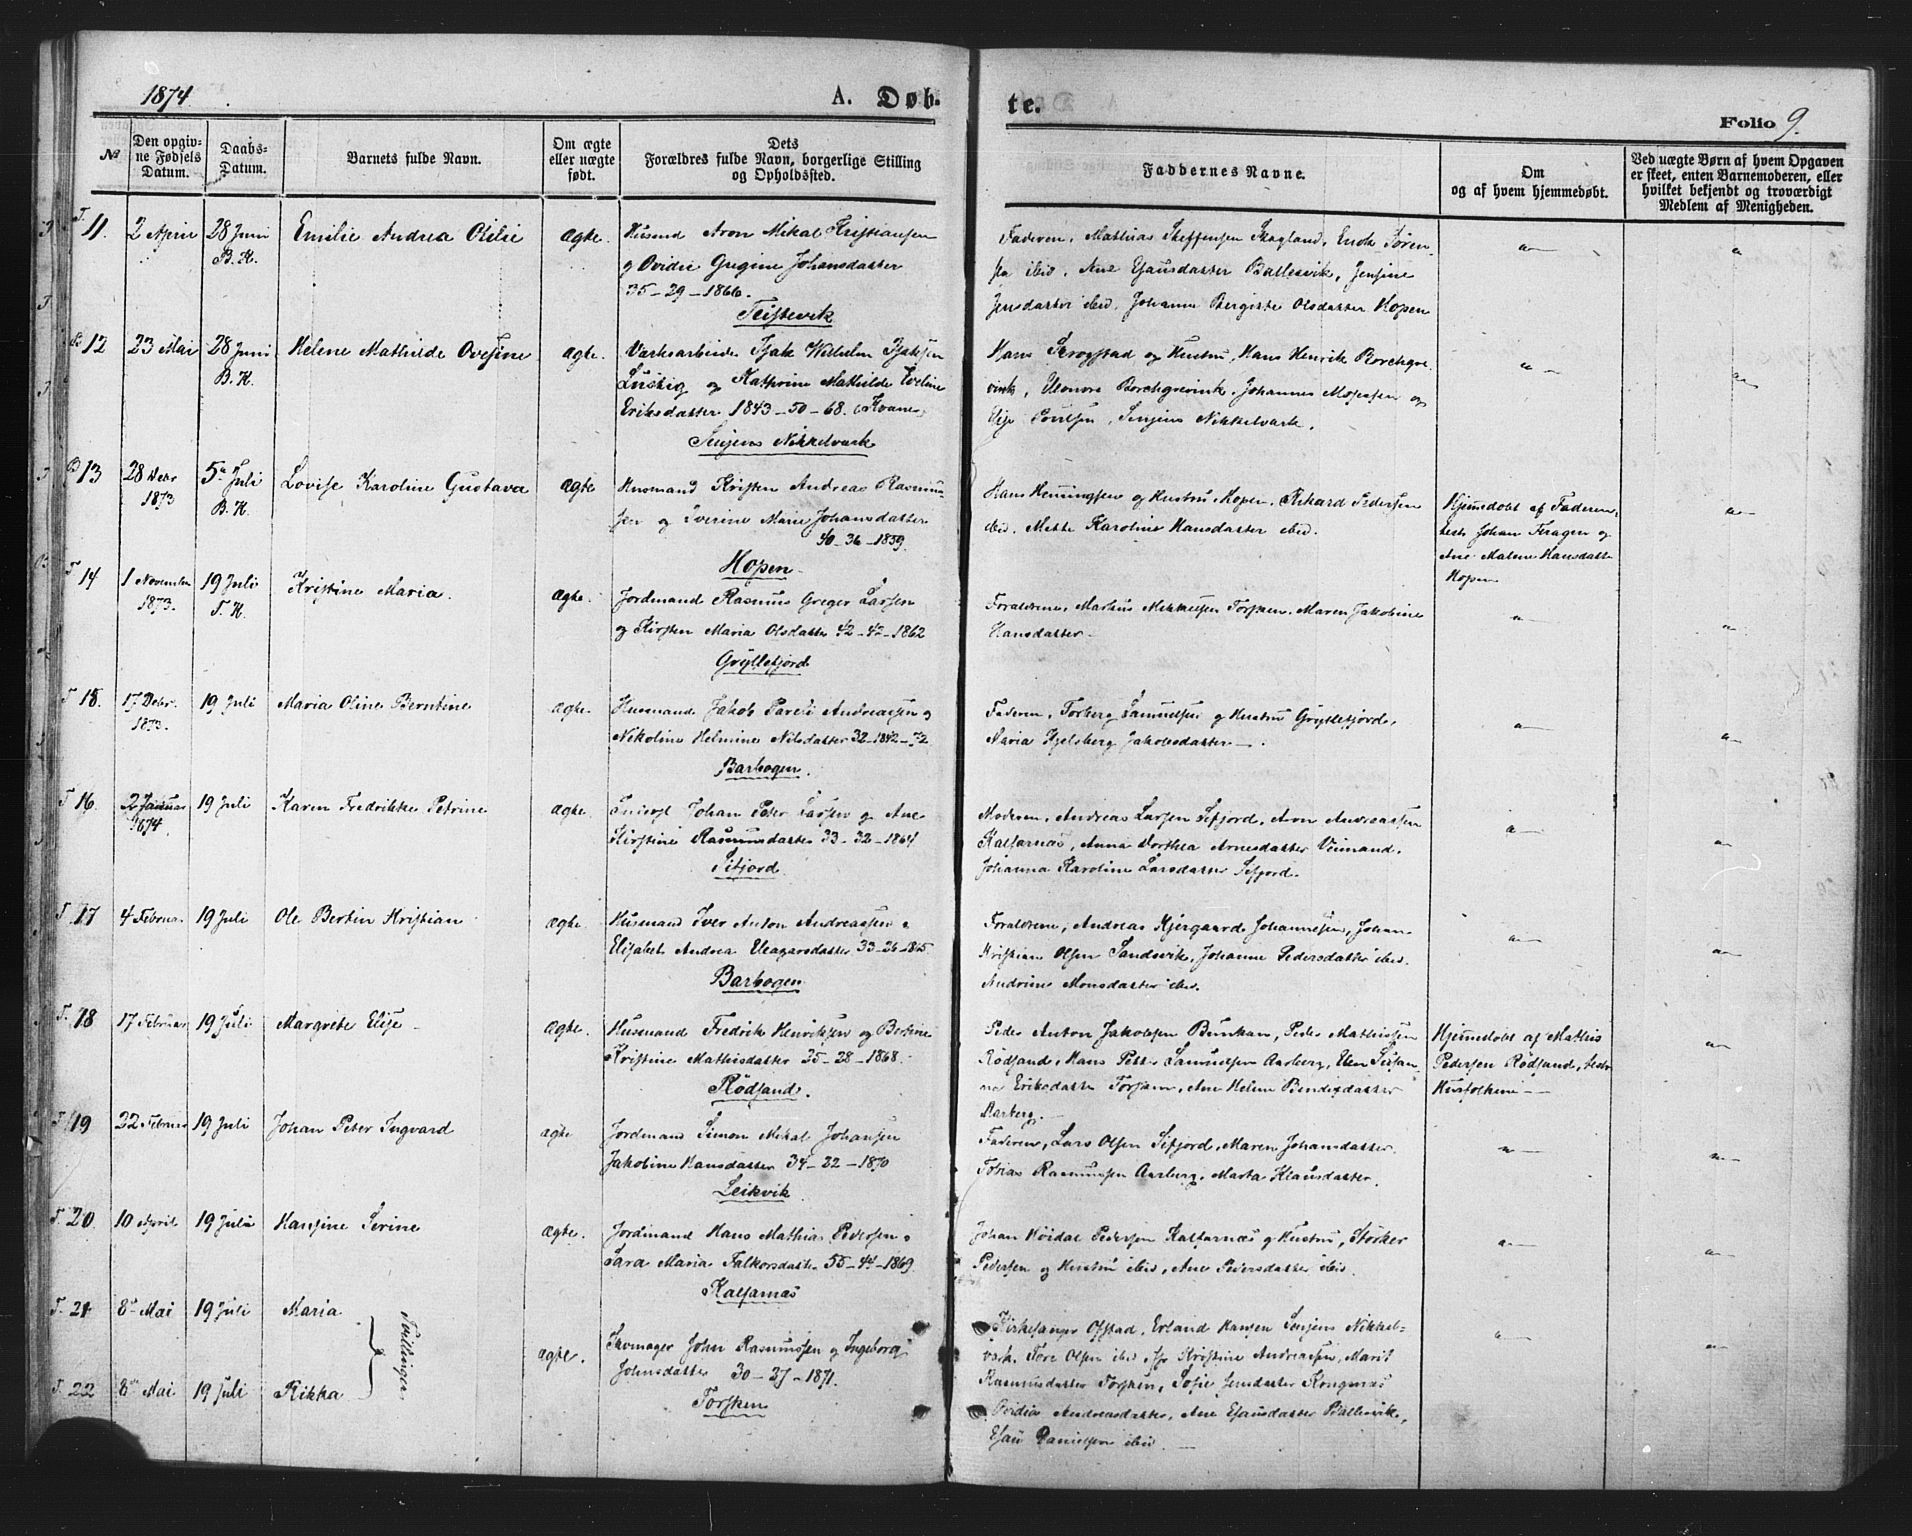 1874
A. Døb-
te.
Folio 9.
№
Den opgiv-
ne Fødsels
Datum.
Daabs-
Datum.
Barnets fulde Navn.
Om ægte
eller uægte
født.
Dets
Forældres fulde Navn, borgerlige Stilling
og Opholdssted.
Faddernes Navne.
Om
og af hvem hjemmedøbt.
Ved uægte Børn af hvem Opgaven
er skeet, enten Barnemoderen, eller
hvilket bekjendt og troværdigt
Medlem af Menigheden.
T. 11. 2 April 28 Juni Emilie Andrea Otilie ægte. Husmd Aron Mikal Kristiansen
B. K.
og Ovidie Gregine Johansdatter
35-29-1866.
Teistevik
Faderen, Mathias Steffensen Skogland, Enok Søren-
sen ibid. Ane Esausdatter Ballesvik, Jensine
Jensdatter ibid. Johanna Bergitte Olsdatter Hopen
12 23 Mai 28 Juni Helene Mathilde Ovesine ægte. Værksarbeider Isak Wilhelm Isaksen
B. K.
Lustig og Kathrine Mathilde Eveline
Eriksdatter 1843-50-68.
Senjens Nikkelværk
Hans Krogstad og Hustru, Hans Henrik Borchgre
vink, Eleonora Borchgrevink, Johannes Mosesen og
Elise Poulsen, Senjens Nikkelværk.
13 28 Debr 5te Juli Lovise Karoline Gustava ægte Husmand Kristen Andreas Rasmus-
1873 B. K.
sen og Severine Marie Johansdatter
40-36-1859.
Hopen
Hans Henningsen og Hustru Hopen, Rikard Pedersen
ibid. Mette Karoline Hansdatter ibid.
Hjemmedøbt af Faderen,
test. Johan Finagen og
Ane Malene Hansdatter
Hopen
T 14 1 November 19 Juli Kristine Maria. ægte. Jordmand Rasmus Greger Larsen
1873. T. K.
og Kirsten Maria Olsdatter 42-42-1862
Gryllefjord
Forældrene, Markus Mikkelsen Torsken, Maren Jakobine
Hansdatter
T 15. 17 Debr. 19 Juli Maria Oline Berntine ægte. Husmand Jakob Pareli Andreassen og
1873.
Nikoline Helmine Nilsdatter 32-1842-72
Barbogen.
Faderen, Torberg Samuelsen og Hustru Gryllefjord,
Maria Kjelsberg Jakobsdatter
T 16. 2 Januar 19 Juli Karen Fredrikke Petrine ægte. Inderst Johan Peter Larsen og Ane
1874.
Kirstine Rasmusdatter 33-32-1864
Sifjord
Moderen, Andreas Larsen Sifjord, Aron Andreassen
Kalfarnæs, Anna Dorthea Arnesdatter Veimand,
Johanna Karoline Larsdatter Sifjord.
T. 17 4 Februar 19 Juli Ole Bertin Kristian ægte. Husmand Iver Anton Andreassen &
Elisabet Andrea Eleasarsdatter 33-26-1865.
Barbogen
Forældrene, Andreas Kjergaard Johannesen, Johan
Kristian Olsen Sandsvik, Johanne Pedersdatter ibid.
Andrine Monsdatter ibid.
T. 18 17 Februar 19 Juli Margrete Elise ægte. Husmand Fredrik Henriksen og Bertine
Kristine Mathisdatter 35-28-1868.
Rødsand.
Peder Anton Jakobsen Bunkan, Peder Mathissen
Rødsand, Hans Peter Samuelsen Aarberg, Elen Susan-
na Eriksdatter Torsken, Ane Helene Bendigsdatter
Aarberg.
Hjemmedøbt af Mathis
Pedersen Rødsand, testr
Husfolkene
T 19 22 Februar 19 Juli Johan Peter Ingvard ægte Jordmand Simon Mikal Johansen
Jakobine Hansdatter 34-22-1870
Leikvik
Faderen, Lars Olsen Sifjord, Maren Johansdatter,
Tobias Rasmussen Aarberg, Marta Klausdatter.
T. 20. 10 April 19 Juli Hansine Serine ægte. Jordmand Hans Mathias Pedersen &
Sara Maria Falkorsdatter 55-44-1869.
Kalfarnæs
Johan Høidal Pedersen Kalfarnæs og Hustru, Størker
Pedersen og Hustru ibid, Ane Pedersdatter ibid.
T. 21 8de Mai 19 Juli Maria
Tvillinger.
ægte. Skomager John Rasmussen og Ingeborg
Johnsdatter 30-27-1871.
Torsken
T. 22 8de Mai 19 Juli Rikka
Kirkesanger Ofstad, Erland Hansen Senjens Nikkel-
værk. Tore Olsen ibid, Kristine Andreassen, Marit
Rasmusdatter Torsken, Sofie Jensdatter Kongsnæs
Ovidia Andreasdatter, Ane Esausdatter Ballesvik,
Esau Danielsen ibid.